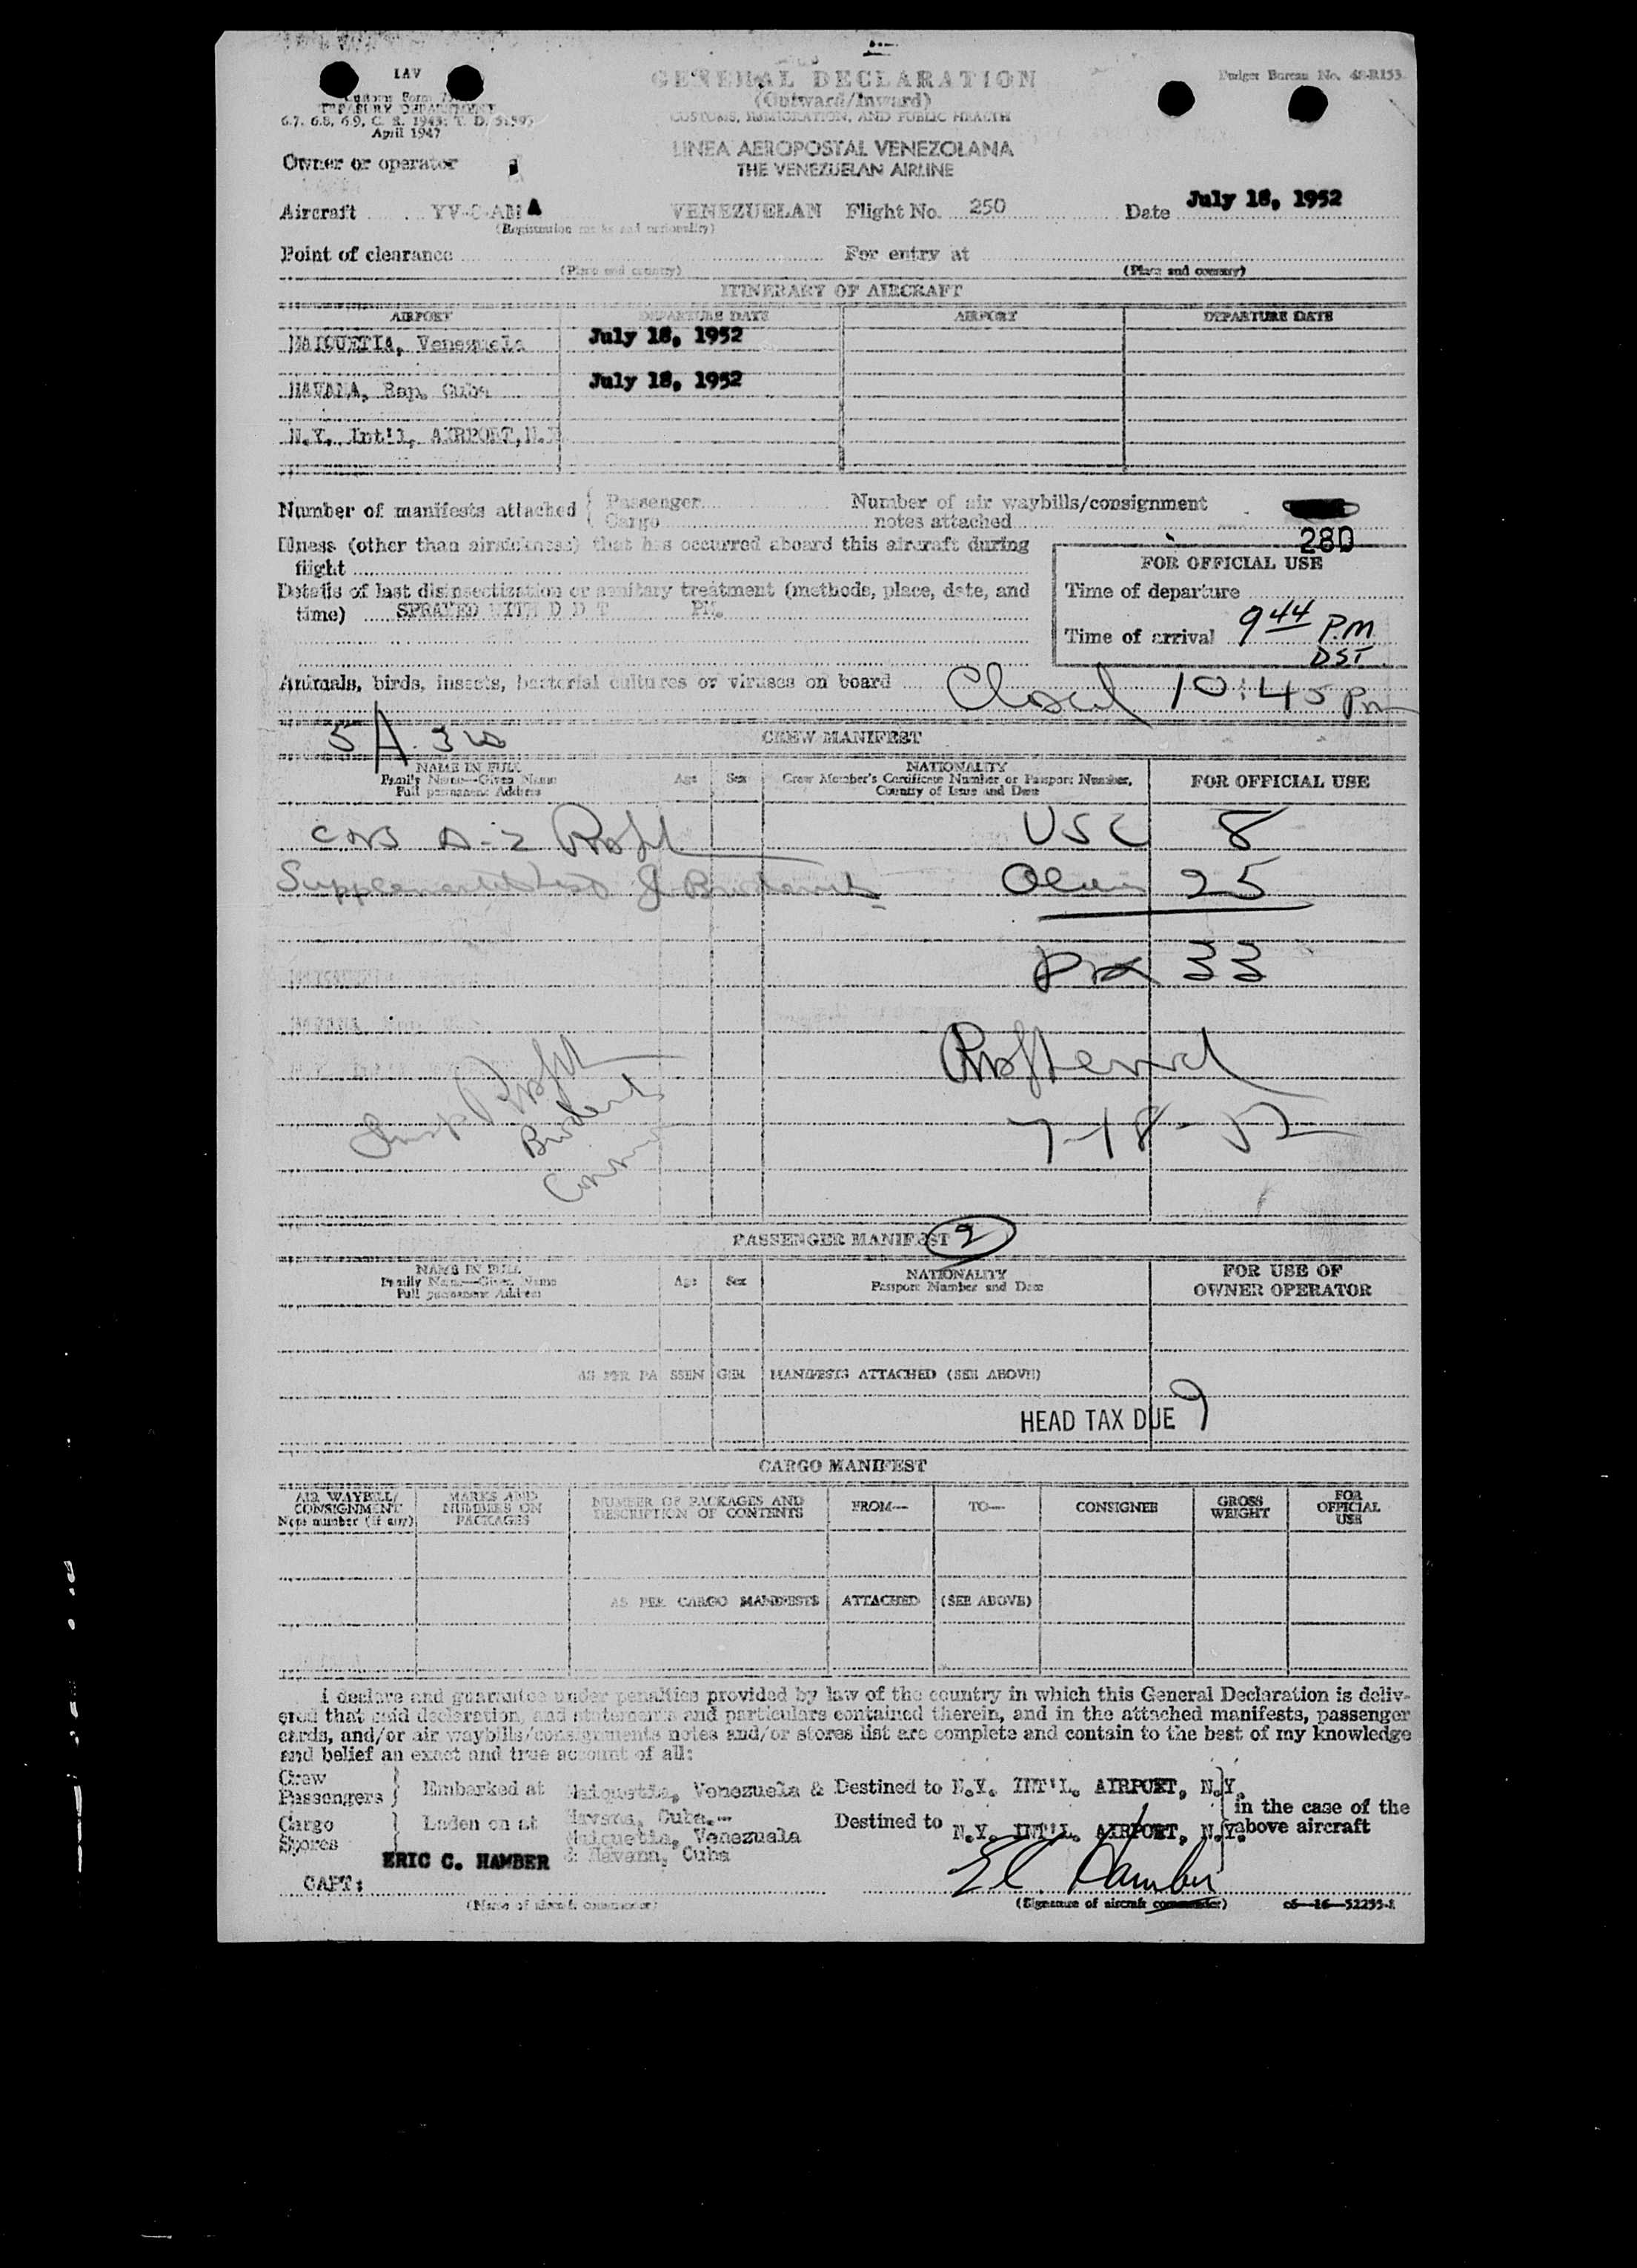 LAV
GENERAL DECLARATION
Budget Bureau No. 48-R153
(Outward/Inward)
Customs Form
TREASURY DEPARTMENT
CUSTOMS, IMMIGRATION, AND PUBLIC HEALTH
6.7, 6.8, 6.9, C. R. 1943; T. D.
April 1947
LINEA AEROPOSTAL VENEZOLANA
Owner or operator
THE VENEZUELAN AIRLINE
Aircraft VENEZUELAN Flight No. 250 Date July 18, 1952
(Registration marks and nationality)
Point of clearance For entry at
(Place and country) (Place and country)
ITINERARY OF AIRCRAFT
AIRPORT DEPARTURE DATE AIRPORT DEPARTURE DATE
MAIQUETIA, Venezuela July 18, 1952
HAVANA, Rep. Cuba July 18, 1952
N.Y. Int'l, AIRPORT, N.Y.
Number of manifests attached { Passenger Number of air waybills/consignment
Cargo notes attached
280
Illness (other than airsickness) that has occurred aboard this aircraft during
flight
FOR OFFICIAL USE
Details of last disinsectization or sanitary treatment (methods, place, date, and
Time of departure
time) SPRAYED WITH D D T PM.
Time of arrival 9 44 P.M
DST
Animals, birds, insects, bacterial cultures or viruses on board
Closed 10:45 Pm
CREW MANIFEST
NAME IN FULL
Family Name—Given Name
Full permanent Address
Age Sex
NATIONALITY
Crew Member's Certificate Number or Passport Number,
Country of Issue and Date
FOR OFFICIAL USE
USC 8
25
33
7-18-52
PASSENGER MANIFEST 2
NAME IN FULL
Family Name—Given Name
Full permanent Address
Age Sex
NATIONALITY
Passport Number and Date
FOR USE OF
OWNER OPERATOR
AS PER PASSENGER MANIFESTS ATTACHED (SEE ABOVE)
HEAD TAX DUE 9
CARGO MANIFEST
AIR WAYBILL/
CONSIGNMENT
Note number (if any)
MARKS AND
NUMBERS ON
PACKAGES
NUMBER OF PACKAGES AND
DESCRIPTION OF CONTENTS
FROM—
TO—
CONSIGNEE
GROSS
WEIGHT
FOR
OFFICIAL
USE
AS PER CARGO MANIFESTS ATTACHED (SEE ABOVE)
I declare and guarantee under penalties provided by law of the country in which this General Declaration is deliv-
ered that said declaration, and statements and particulars contained therein, and in the attached manifests, passenger
cards, and/or air waybills/consignments notes and/or stores list are complete and contain to the best of my knowledge
and belief an exact and true account of all:
Crew
Passengers } Embarked at Maiquetia, Venezuela & Destined to N.Y. INT'L. AIRPORT, N.Y.
Havana, Cuba.--
in the case of the
above aircraft
Cargo
Stores } Laden on at Maiquetia, Venezuela Destined to N.Y. INT'L. AIRPORT, N.Y.
& Havana, Cuba
ERIC C. HAMBER
CAPT: EC Hamber
(Name of aircraft commander) (Signature of aircraft commander) c6—16—52255-1